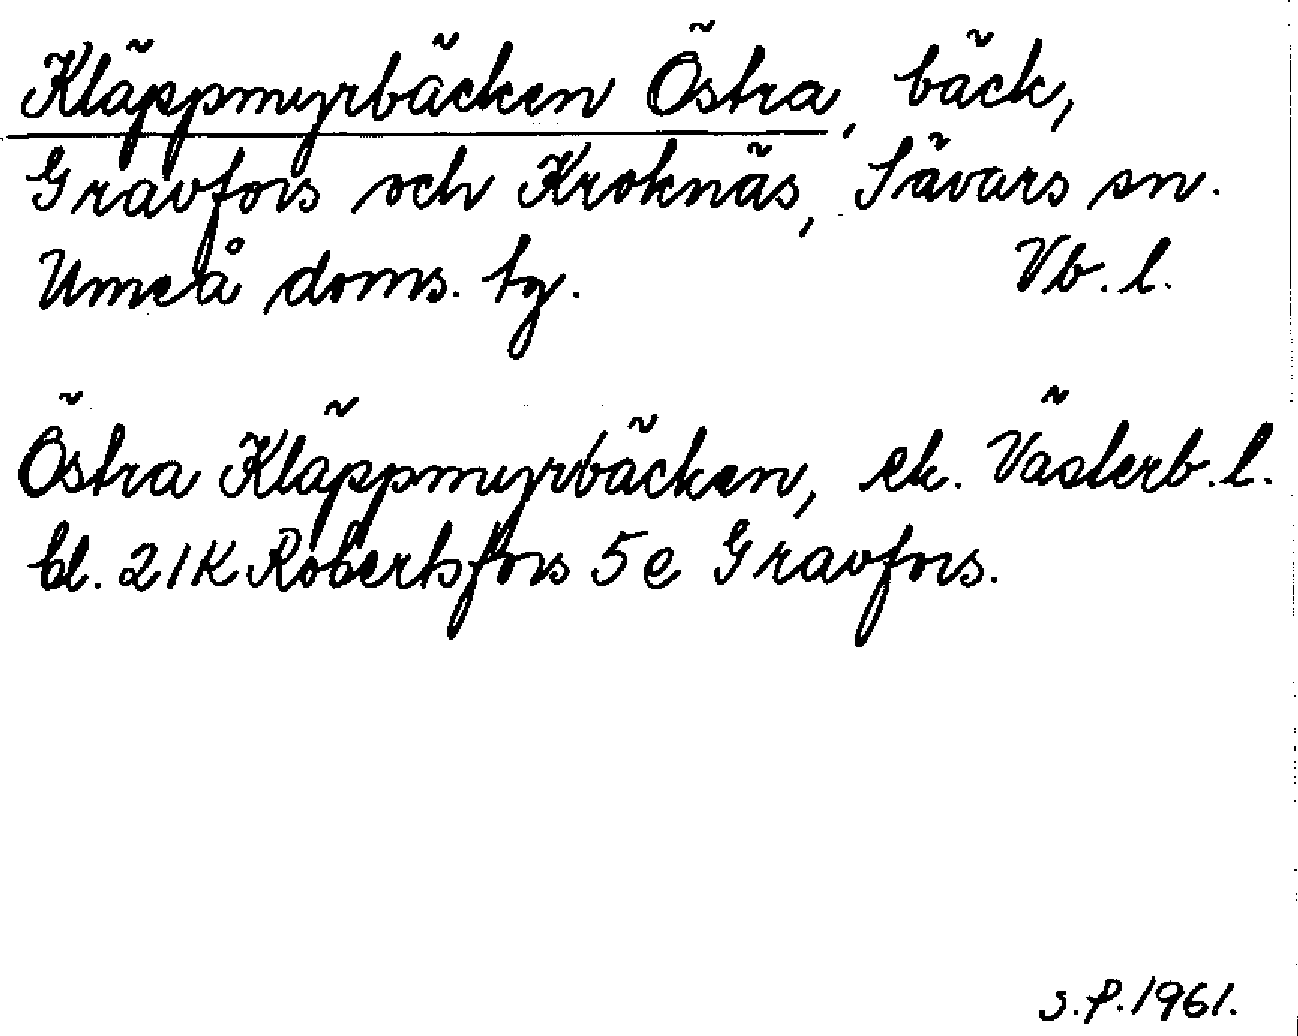 Kläppmyrbäcken Östra, bäck,
Gravfors och Kroknäs, Sävars sn.
Umeå doms. tg. Vb. l.
Östra Kläppmyrbäcken, ek. Västerb. l.
bl. 21K Robertsfors 5e Gravfors.
S.P. 1961.